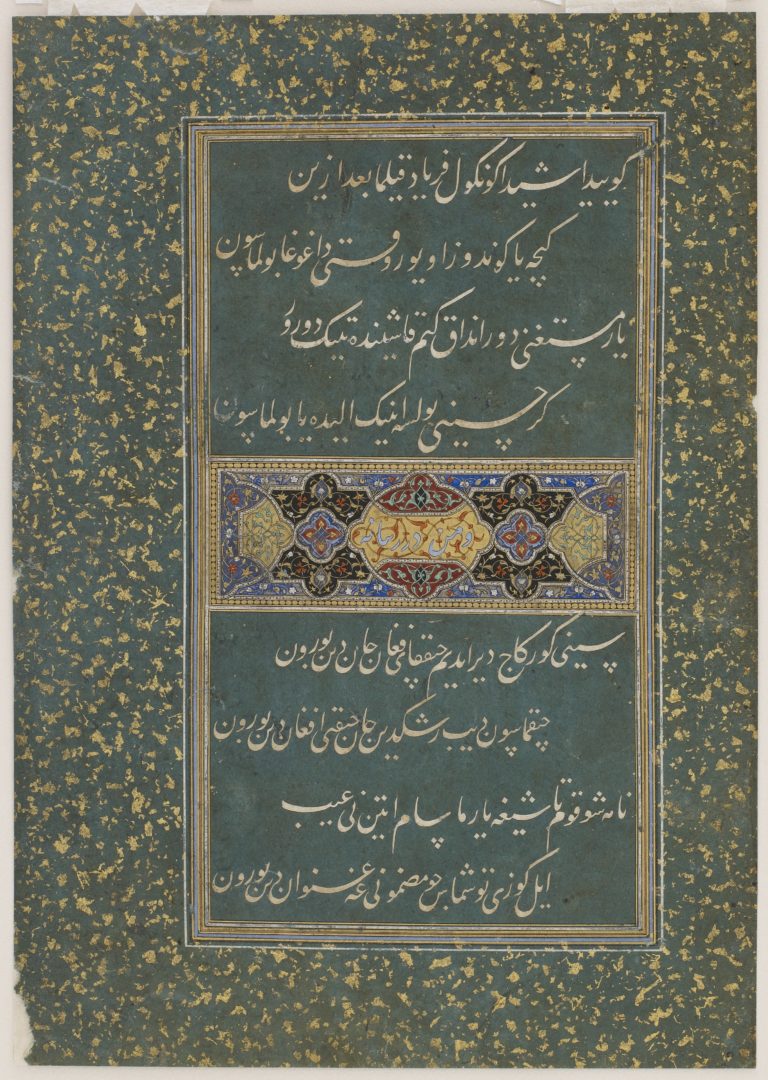 کوییدا شیدا کونکول فریاد قیلما بعد ازین
کیچه یا کوندوز اویوروقتی دا غوغا بولماسون
یار مستغنی دورانداق کیم قاشینده تینک دورور
کر حسینی بولسه انینک الیده یا بولماسون
ومن درر
سینی کورکاج دیر ایدیم چیققای فغان جان دین بورون
چیقماسون دیب رشکیدین جان چیقتی افغان دین بورون
نامه شوقوم تاشیغه یازماسام اتین نی عیب
ایل کوزی توشماس مو مضمونی غه عنوان دین بورون